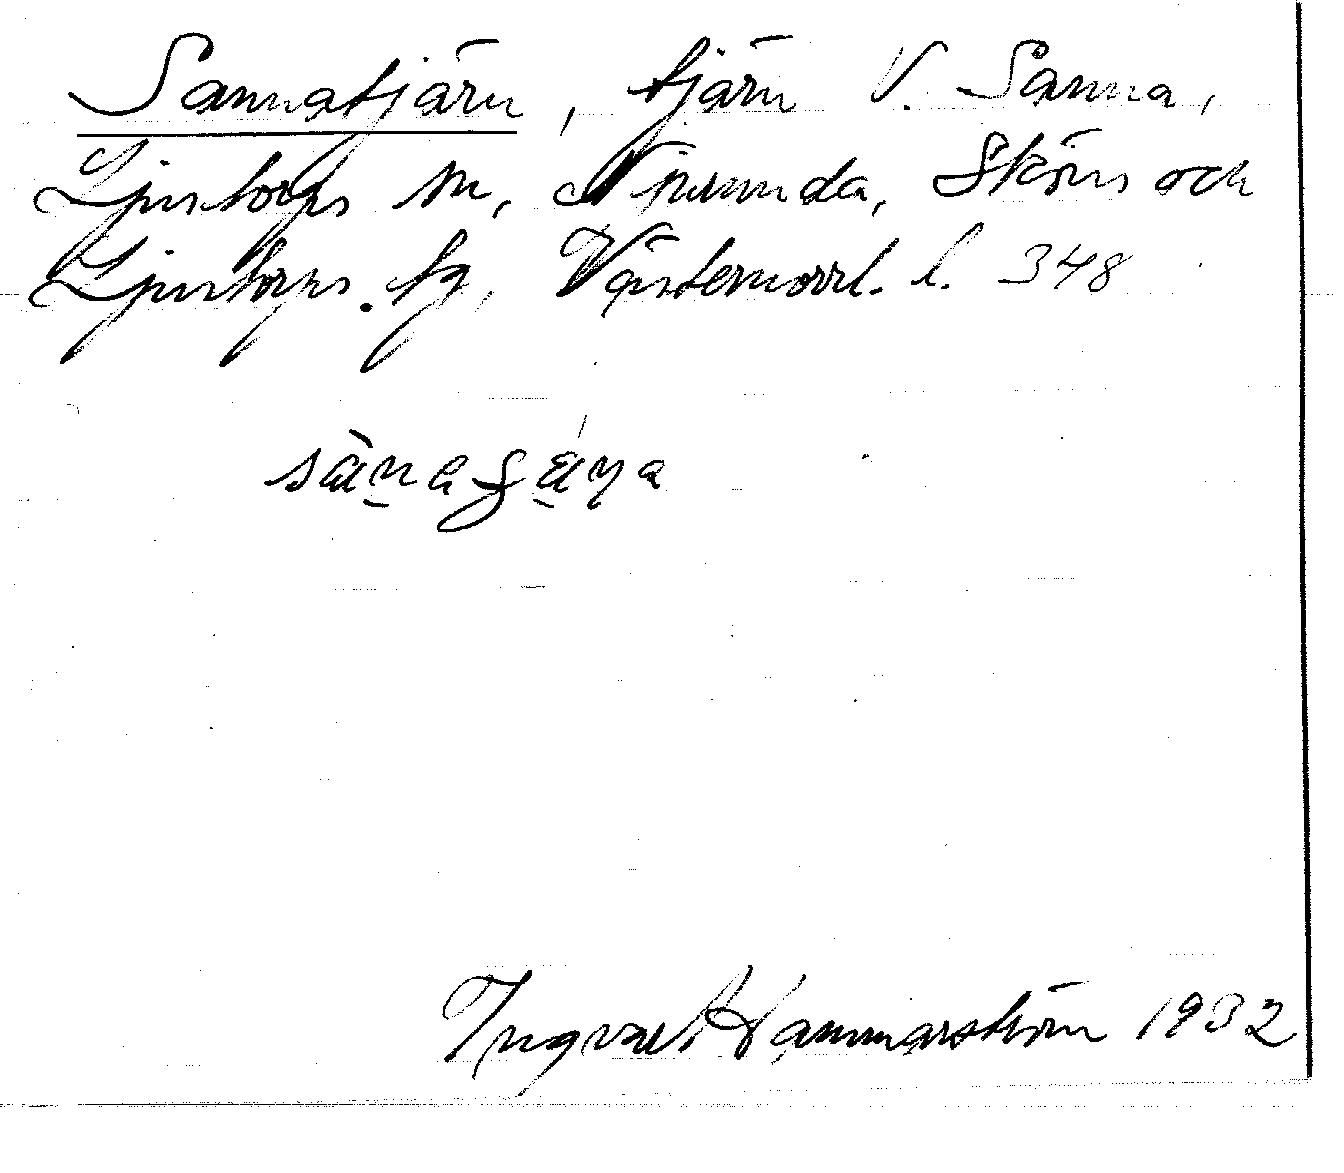 Sannatjärn, tjärn V. Sanna,
Ljustorps sn, Njurunda, Sköns och
Ljustorps tg, Västernorrl. l. 348
Ingvar Hammarström 1932